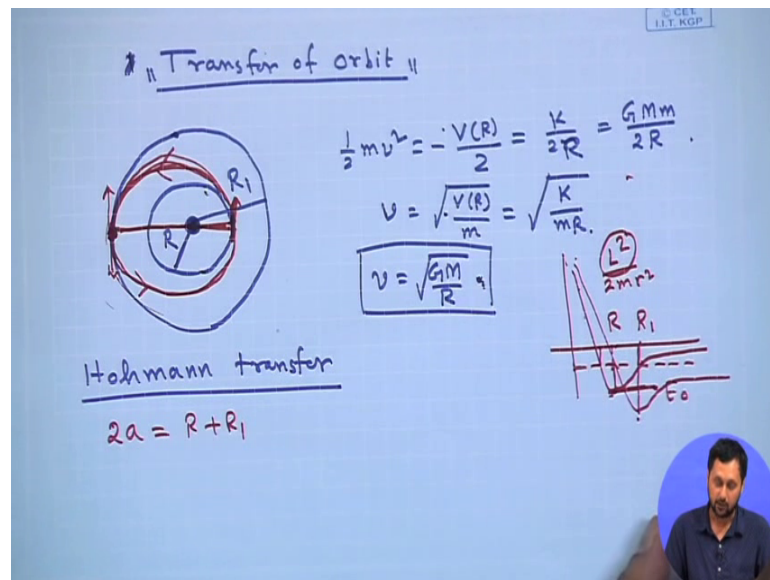 © CET
I.I.T. KGP
"Transfer of orbit"
R₁
R
½mv² = -V(R)/2 = K/2R = GMm/2R.
v = √V(R)/m = √K/mR.
v = √GM/R
L²/2mr²
R R₁
E₀
Hohmann transfer
2a = R + R₁